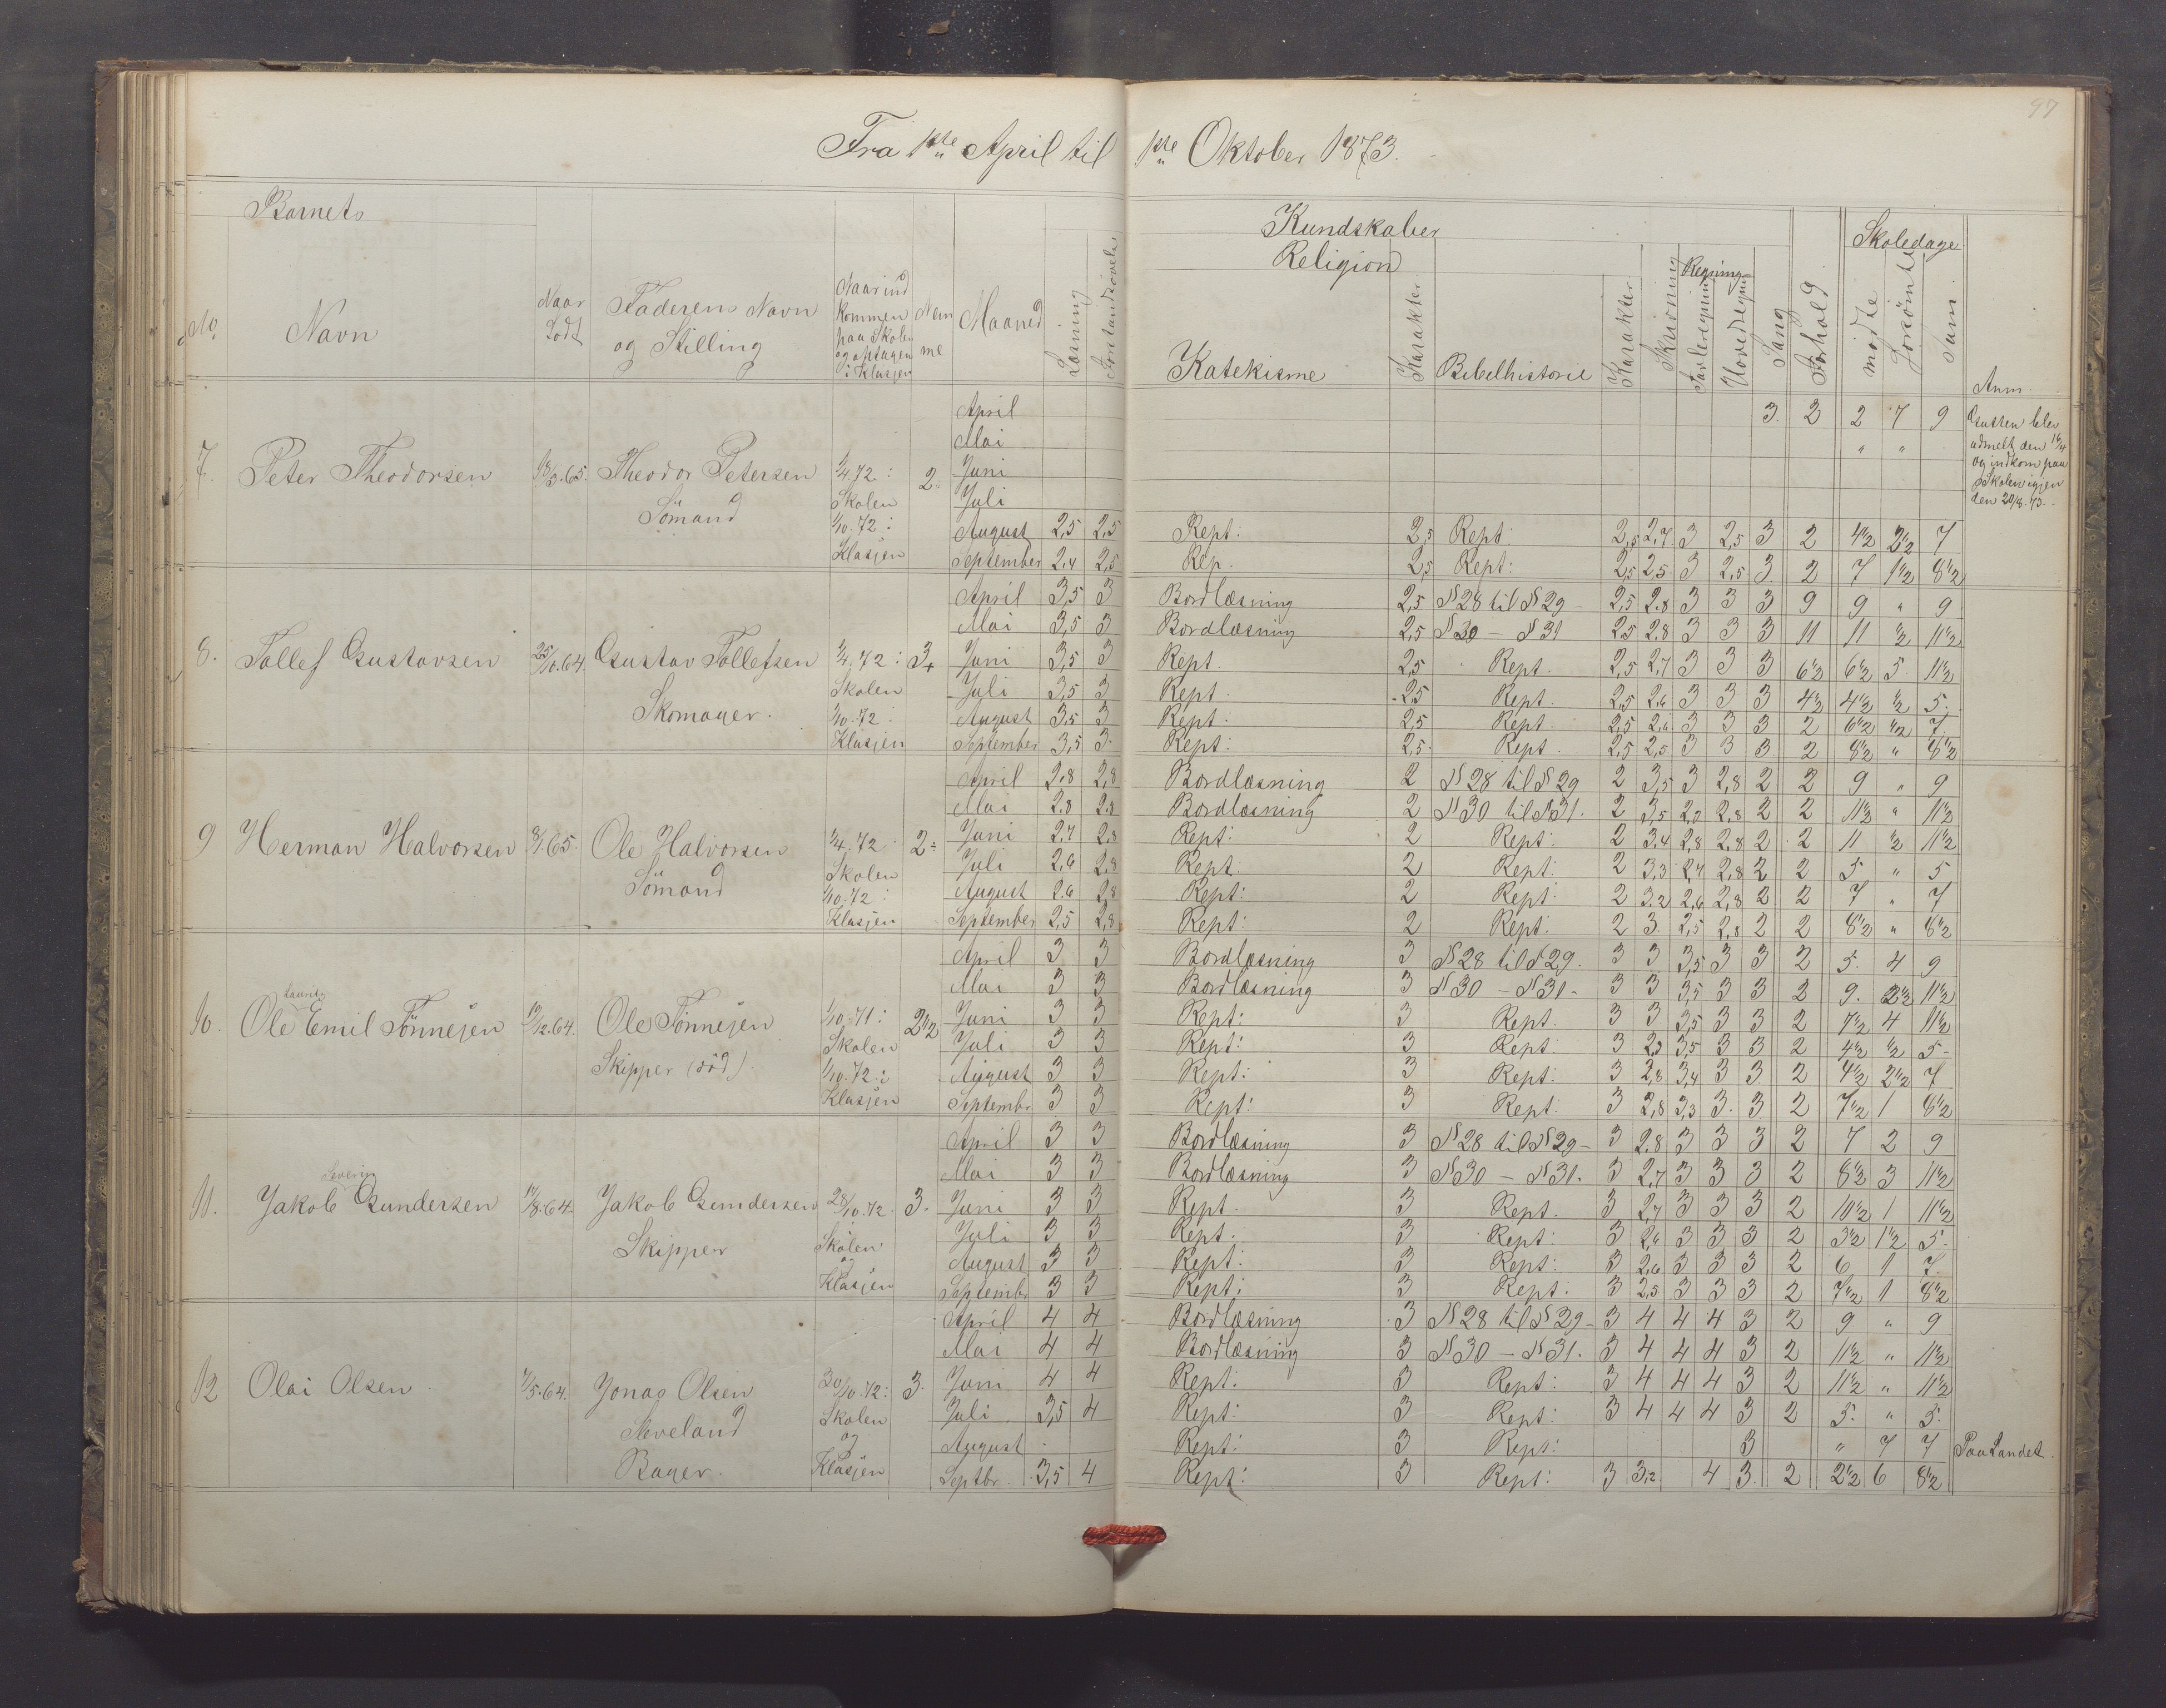 97
Fra 1ste April til 1ste Oktober 1873.
Barnets Kundskaber Skoledage
Religion Regning
No. Navn Naar født Faderens Navn og Stilling Naar ind kommen paa Skolen og optagen i Klassen Nemme Maaned Læsning Forstandsøvelse Katekisme Karakter Bibelhistorie Karakter Skrivning Tavleregning Hovedregning Sang Forhold mødte forsømte Sum Anm.
April 3. 2 2 7 9 Gutten blev
Mai " " udmelt den 16/4
7. Peter Theodorsen 65. Theodor Petersen 1/4.72: 2 Juni og indkom paa
Sömand Skolen Juli Skolen igjen den 20/8.73.
1/10.72: August 2,5 2,5 Rept: 2,5 Rept: 2,5 2,7 3 2,5 3 2 4 1/2 2 1/2 7
Klassen September 2,4 2,5 Rep. 2,5 Rept: 2,5 2,5 3 2,5 3 2 7 1 1/2 8 1/2
April 3,5 3 Bordlæsning 2,5 § 28 til § 29 - 2,5 2,8 3 3 3 9 9 " 9
Mai 3,5 3 Bordlæsning 2,5 § 30 - § 31 2,5 2,8 3 3 3 11 11 1/2 11 1/2
8. Tollef Gustavsen 25/10.64. Gustav Tollefsen 1/4.72: 3+ Juni 3,5 3 Rept. 2,5 Rept. 2,5 2,7 3 3 3 6 1/2 6 1/2 5 11 1/2
Skomager. Skolen Juli 3,5 3 Rept. 2,5 Rept. 2,5 2,6 3 3 3 4 1/2 4 1/2 1/2 5.
1/10.72: August 3,5 3 Rept: 2,5 Rept. 2,5 2,6 3 3 3 2 6 1/2 1/2 7
Klassen September 3,5 3. Rept: 2,5. Rept. 2,5 2,5 3 3 3 2 8 1/2 " 8 1/2
April 2.8 2,8 Bordlæsning 2 § 28 til § 29 2 3,5 3 2,8 2 2 9 " 9
Mai 2.8 2.8 Bordlæsning 2 § 30 til § 31. 2 3,5 2,8 2 2 11 1/2 " 11 1/2
9 Herman Halvorsen 8/1.65. Ole Halvorsen 1/4.72 2 Juni 2,7 2,8 Rept: 2 Rept. 2 3.4 2,8 2,8 2 2 11 1/2 11 1/2
Sömand Skolen Juli 2,6 2,8 Rept. 2 Rept. 2 3,3 2,8 2 2 5 " 5
1/10.72: August 2.6 2,8 Rept: 2 Rept. 2 3.2 2,6 2,8 2 2 7 " 7
Klassen September 2,5 2,8 Rept: 2 Rept: 2 3. 2,5 2,8 2 2 8 1/2 " 8 1/2
April 3 3 Bordlæsning 3 § 28 til § 29. 3 3 3,5 3 3 2 5. 4 9
Mai 3 3 Bordlæsning 3 § 30 - § 31 - 3 3 3,5 3 3 2 9. 2 1/2 11 1/2
10. Ole Emil Tönnesen 12.64. Ole Tönnesen 1/10.71: 2 1/2 Juni 3 3 Rept: 3 Rept. 3 3 3,5 3 3 2 7 1/2 4 11 1/2
Skipper (död). Skolen Juli 3 3 Rept: 3 Rept. 3 3,5 3 3 2 4 1/2 1/2 5 -
1/10.72: August 3 3 Rept: 3 Rept: 3 2,8 3,4 3 3 2 4 1/2 2 1/2 7
Klassen Septembr 3 3 Rept: 3 Rept. 3 2,8 3,3 3. 3 2 7 1/2 1 8 1/2
April 3 3 Bordlæsning 3 § 28 til § 29 - 3 2.8 3 3 3 2 7 2 9
Severin Mai 3 3 Bordlæsning 3 § 30 - § 31. 3 2,7 3 3 3 2 8 1/2 3 11 1/2
11. Jakob Gundersen 8.64. Jakob Gundersen 28/10.72. 3. Juni 3 3 Rept. 3 Rept. 3 2,7 3 3 3 2 10 1/2 1 11 1/2
Skipper Skolen Juli 3 3 Rept. 3 Rept: 3 2,6 3 3 3 2 3 1/2 1 1/2 5.
og August 3 3 Rept: 3 Rept: 3 2,6 3 3 3 2 6 1 7.
Klassen Septembr 3 3 Rept: 3 Rept: 3 2,5 3 3 3 2 7 1/2 1 8 1/2
April 4 4 Bordlæsning 3 § 28 til § 29 - 3 4 4 4 3 2 9 " 9
Mai 4 4 Bordlæsning 3 § 30 - § 31. 3 4 4 4 3 2 11 1/2 " 11 1/2
12 Olai Olsen 5.64. Jonas Olsen 30/10.72: 3. Juni 4 4 Rept: 3 Rept: 3 4 4 4 3 2 11 1/2 " 11 1/2
Skolen Juli 3,5 4 Rept: 3 Rept: 3 4 4 4 3 2 5. " 5.
og August Rept: 3 Rept: 3 " 7 7 Paa Landet.
Bager. Klassen Septbr. 3,5 4 Rept: 3 Rept: 3 3,2 4 3. 2 2 1/2 6 8 1/2